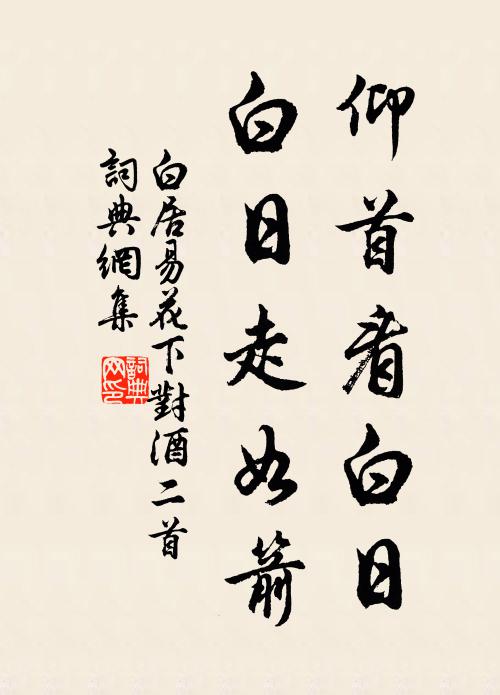 仰首看白日
白日走如箭
白居易花下對酒二首
詞典網集
詞典
网印